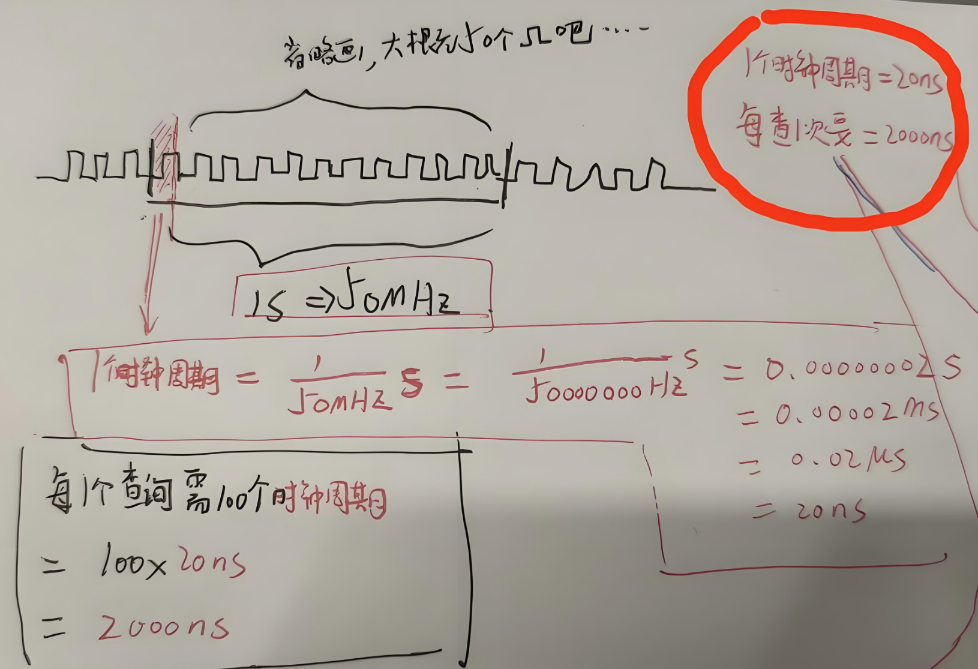 省略画1,大概有50个几吧·····
1个时钟周期=20ns
每查1次要=2000ns
1S ⇒50MHz
1个时钟周期 = 1/50MHz S = 1/50000000Hz S = 0.00000002S
= 0.00002ms
= 0.02Ms
= 20ns
每1个查询需100个时钟周期
= 100×20ns
= 2000ns